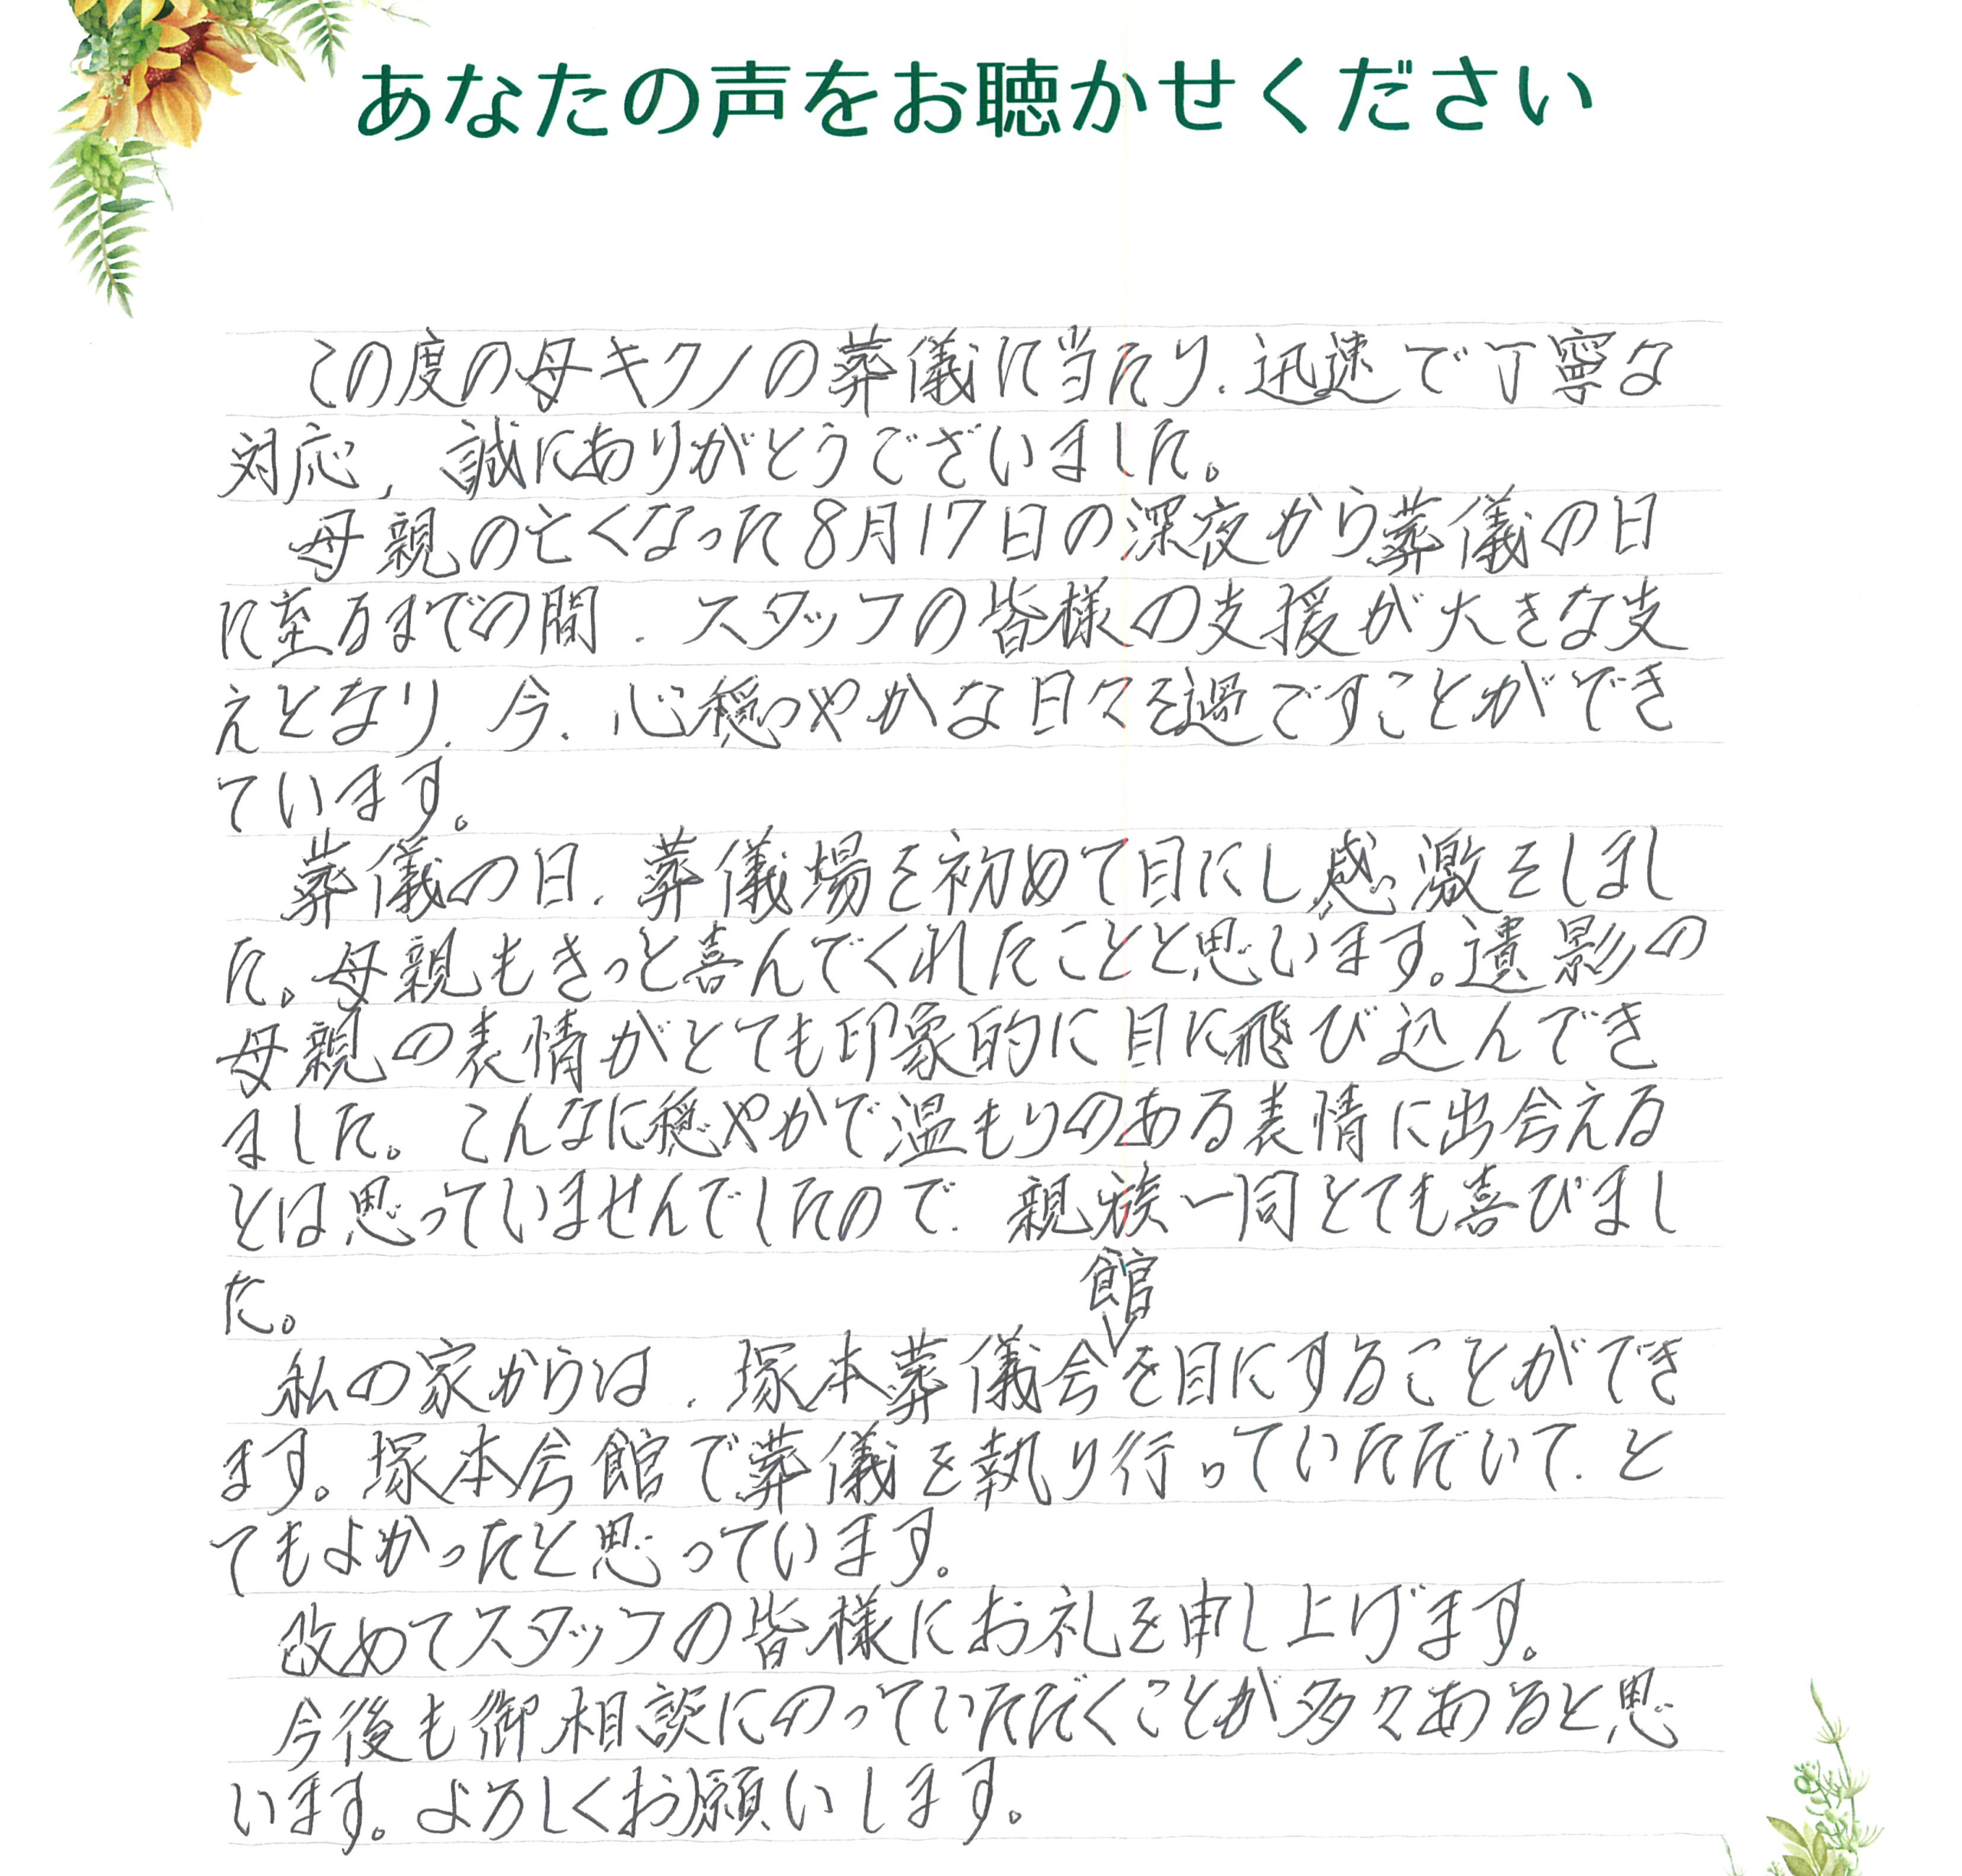 あなたの声をお聴かせください
この度の母キクノの葬儀に当たり、迅速で丁寧な
対応、誠にありがとうございました。
母親の亡くなった8月17日の深夜から葬儀の日
に至るまでの間、スタッフの皆様の支援が大きな支
えとなり、今、心穏やかな日々を過ごすことができ
ています。
葬儀の日、葬儀場を初めて目にし感激をしまし
た。母親もきっと喜んでくれたことと思います。遺影の
母親の表情がとても印象的に目に飛び込んでき
ました。こんなに穏やかで温もりのある表情に出会える
とは思っていませんでしたので、親族一同とても喜びまし
た。
私の家からは、塚本葬儀会館を目にすることができ
ます。塚本会館で葬儀を執り行っていただいて、と
てもよかったと思っています。
改めてスタッフの皆様にお礼を申し上げます。
今後も御相談にのっていただくことが多々あると思
います。よろしくお願いします。